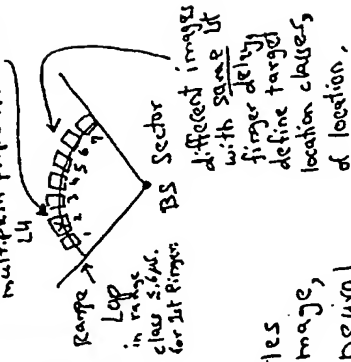 multipath
LH
1 2 3 4 5 6 7
Range
Lop
in range
class 5.6 µs.
for 1st Finger.
BS Sector
different images
with same 1st
finger delays
define target
location classes,
of location.
les
mage,
neural